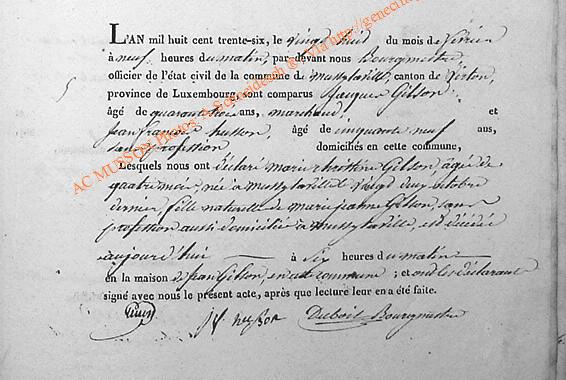 L'AN mil huit cent trente-six, le vingt huit du mois de février
à neuf heures du matin, par-devant nous Bourgmestre,
officier de l'état civil de la commune de mussylaville, canton de virton,
province de Luxembourg, sont comparus Jacques Gilson
âgé de quarante trois ans, marchand, et
jean françois husson, âgé de cinquante neuf ans,
sans profession domiciliés en cette commune,
Lesquels nous ont déclaré marie christine Gilson, âgée de
quatre mois, née à mussylaville le vingt deux octobre
dernier, fille naturelle de marie jeanne Gilson, sans
profession aussi domiciliée à mussylaville, est décédée
aujourd'hui à six heures du matin
en la maison de jean Gilson, en cette commune ; et ont les déclarant
signé avec nous le présent acte, après que lecture leur en a été faite.
Dubois Bourgmestre
AC MUSSON Photos A Schneidesch &
Via http://